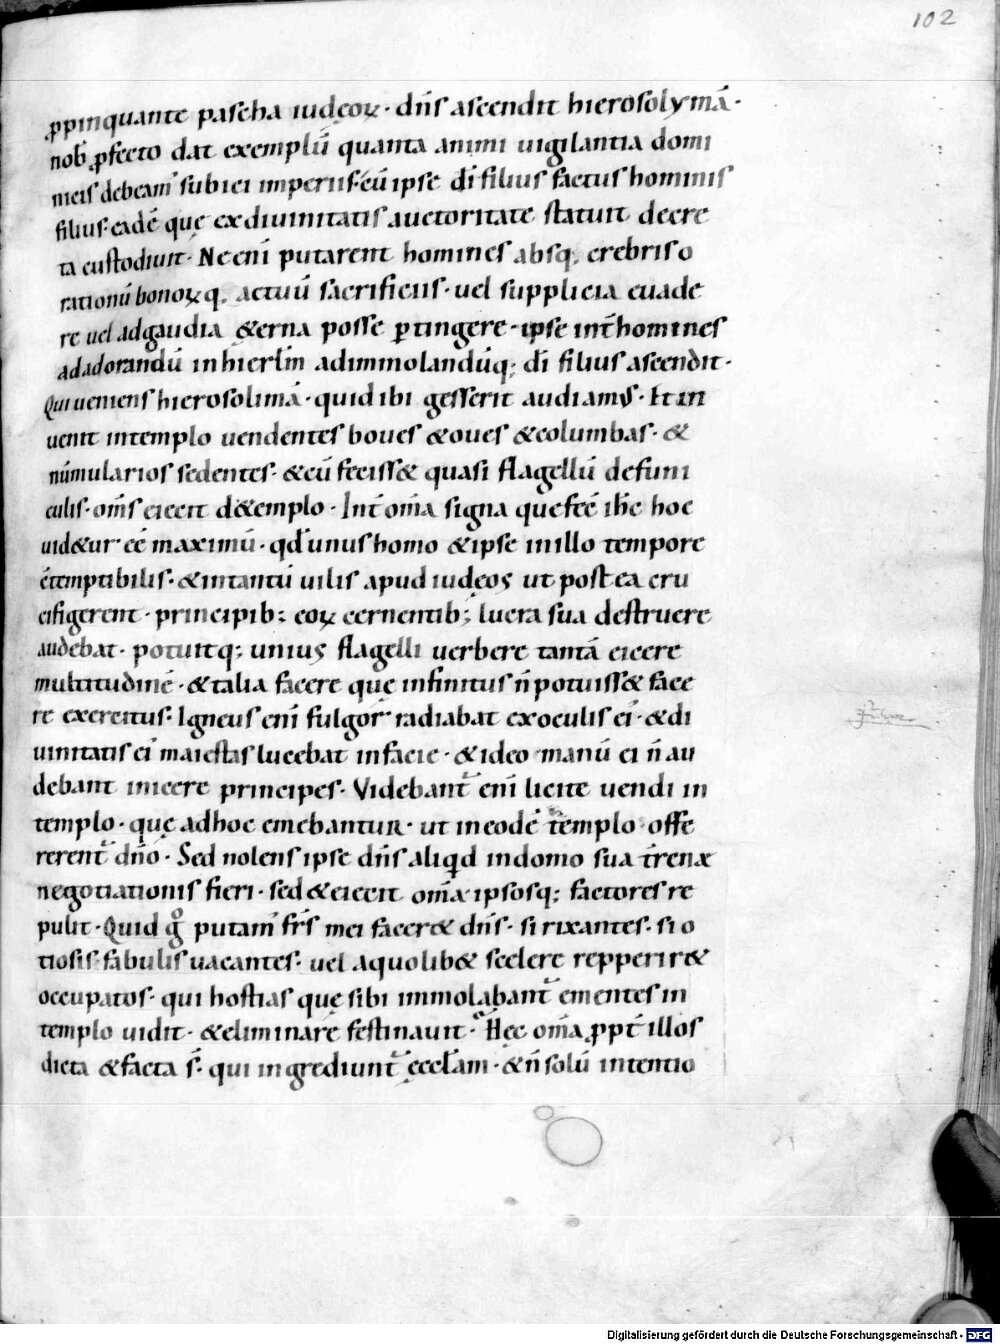 102
ꝓpinquante pascha iudęoꝝ· dn̄s ascendit hierosolymā·
nob̄ ꝓfecto dat exemplū quanta animi uigilantia domi
nicis debeam' subici imperiis· cū ipse dī filius factus hominis
filius· eadē quę ex diuinitatis auctoritate statuit decre
ta custodiuit· Ne eni putarent homines absq; crebris o
rationū bonoꝝq; actuū sacrificiis· uel supplicia euade
re uel ad gaudia &erna posse ꝑtingere· ipse int̄ homines
ad adorandū in hierl̄m ad immolandūq; dī filius ascendit·
Qui ueniens hierosolimā· quid ibi gesserit audiamus· Et in
uenit in templo uendentes boues & oues & columbas· &
nūmularios sedentes· & cū feciss& quasi flagellū de funi
culis· om̄s eiecit de templo· Int̄ om̄a signa que fec̄ ih̄c hoc
uid&ur eē maximū· qđ unus homo & ipse in illo tempore
c̄temptibilis· & in tantū uilis apud iudęos ut postea cru
cifigerent· principib; eoꝝ cernentib; lucra sua destruere
audebat· potuitq; unius flagelli uerbere tantā eicere
multitudinē· & talia facere quę infinitus n̄ potuiss& face
re exercitus. Igneus eni fulgor radiabat ex oculis ei'· & di
uinitatis ei' maiestas lucebat in facie· & ideo manū ei n̄ au
debant inicere principes· Videbant' eni licite uendi in
templo· quę ad hoc emebantur· ut in eodē templo offe
rerent' dn̄o· Sed nolens ipse dn̄s aliqđ in domo sua t̄renæ
negotiationis fieri· sed & eiecit om̄a ipsosq; factores re
pulit· Quid gͦ putam' frs̄ mei facer& dn̄s· si rixantes· si o
tiosis fabulis uacantes· uel a quolib& scelere repperir&
occupatos· qui hostias que sibi immolabant' ementes in
templo uidit· & eliminare festinauit· Hęc om̄a ꝓpt̄ illos
dicta & facta s̄· qui ingrediunt' ęccl̄am· & n̄ solū intentio
Digitalisierung gefördert durch die Deutsche Forschungsgemeinschaft - DFG